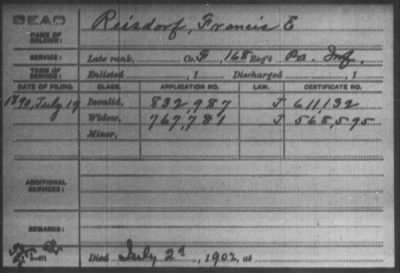 DEAD
Reisdorf, Francis E
NAME OF SOLDIER:
SERVICE: Late rank, Co. F, 168 Reg't Pa. Inf.
TERM OF SERVICE: Enlisted , 1 Discharged , 1
DATE OF FILING. CLASS. APPLICATION NO. LAW. CERTIFICATE NO.
1890, July 19 Invalid, 832,987 J 611,132
Widow, 767,781 J 568,595
Minor,
ADDITIONAL SERVICES:
REMARKS:
Died July 2d, 1902, at